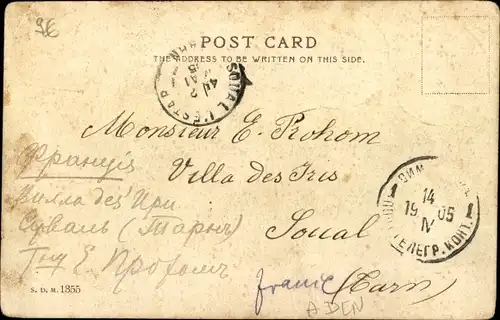 96
POST CARD
THE ADDRESS TO BE WRITTEN ON THIS SIDE.
SOUAL
Monsieur E. Prohom
Франція
Villa des Iris
14
19 05
IV
1 1
ТЕЛЕГР. КОНТ.
Вилла des Ири
Суаль (Тарнъ)
Soual
E. Прохомъ
(Tarn)
S. D. M. 1355
ADEN